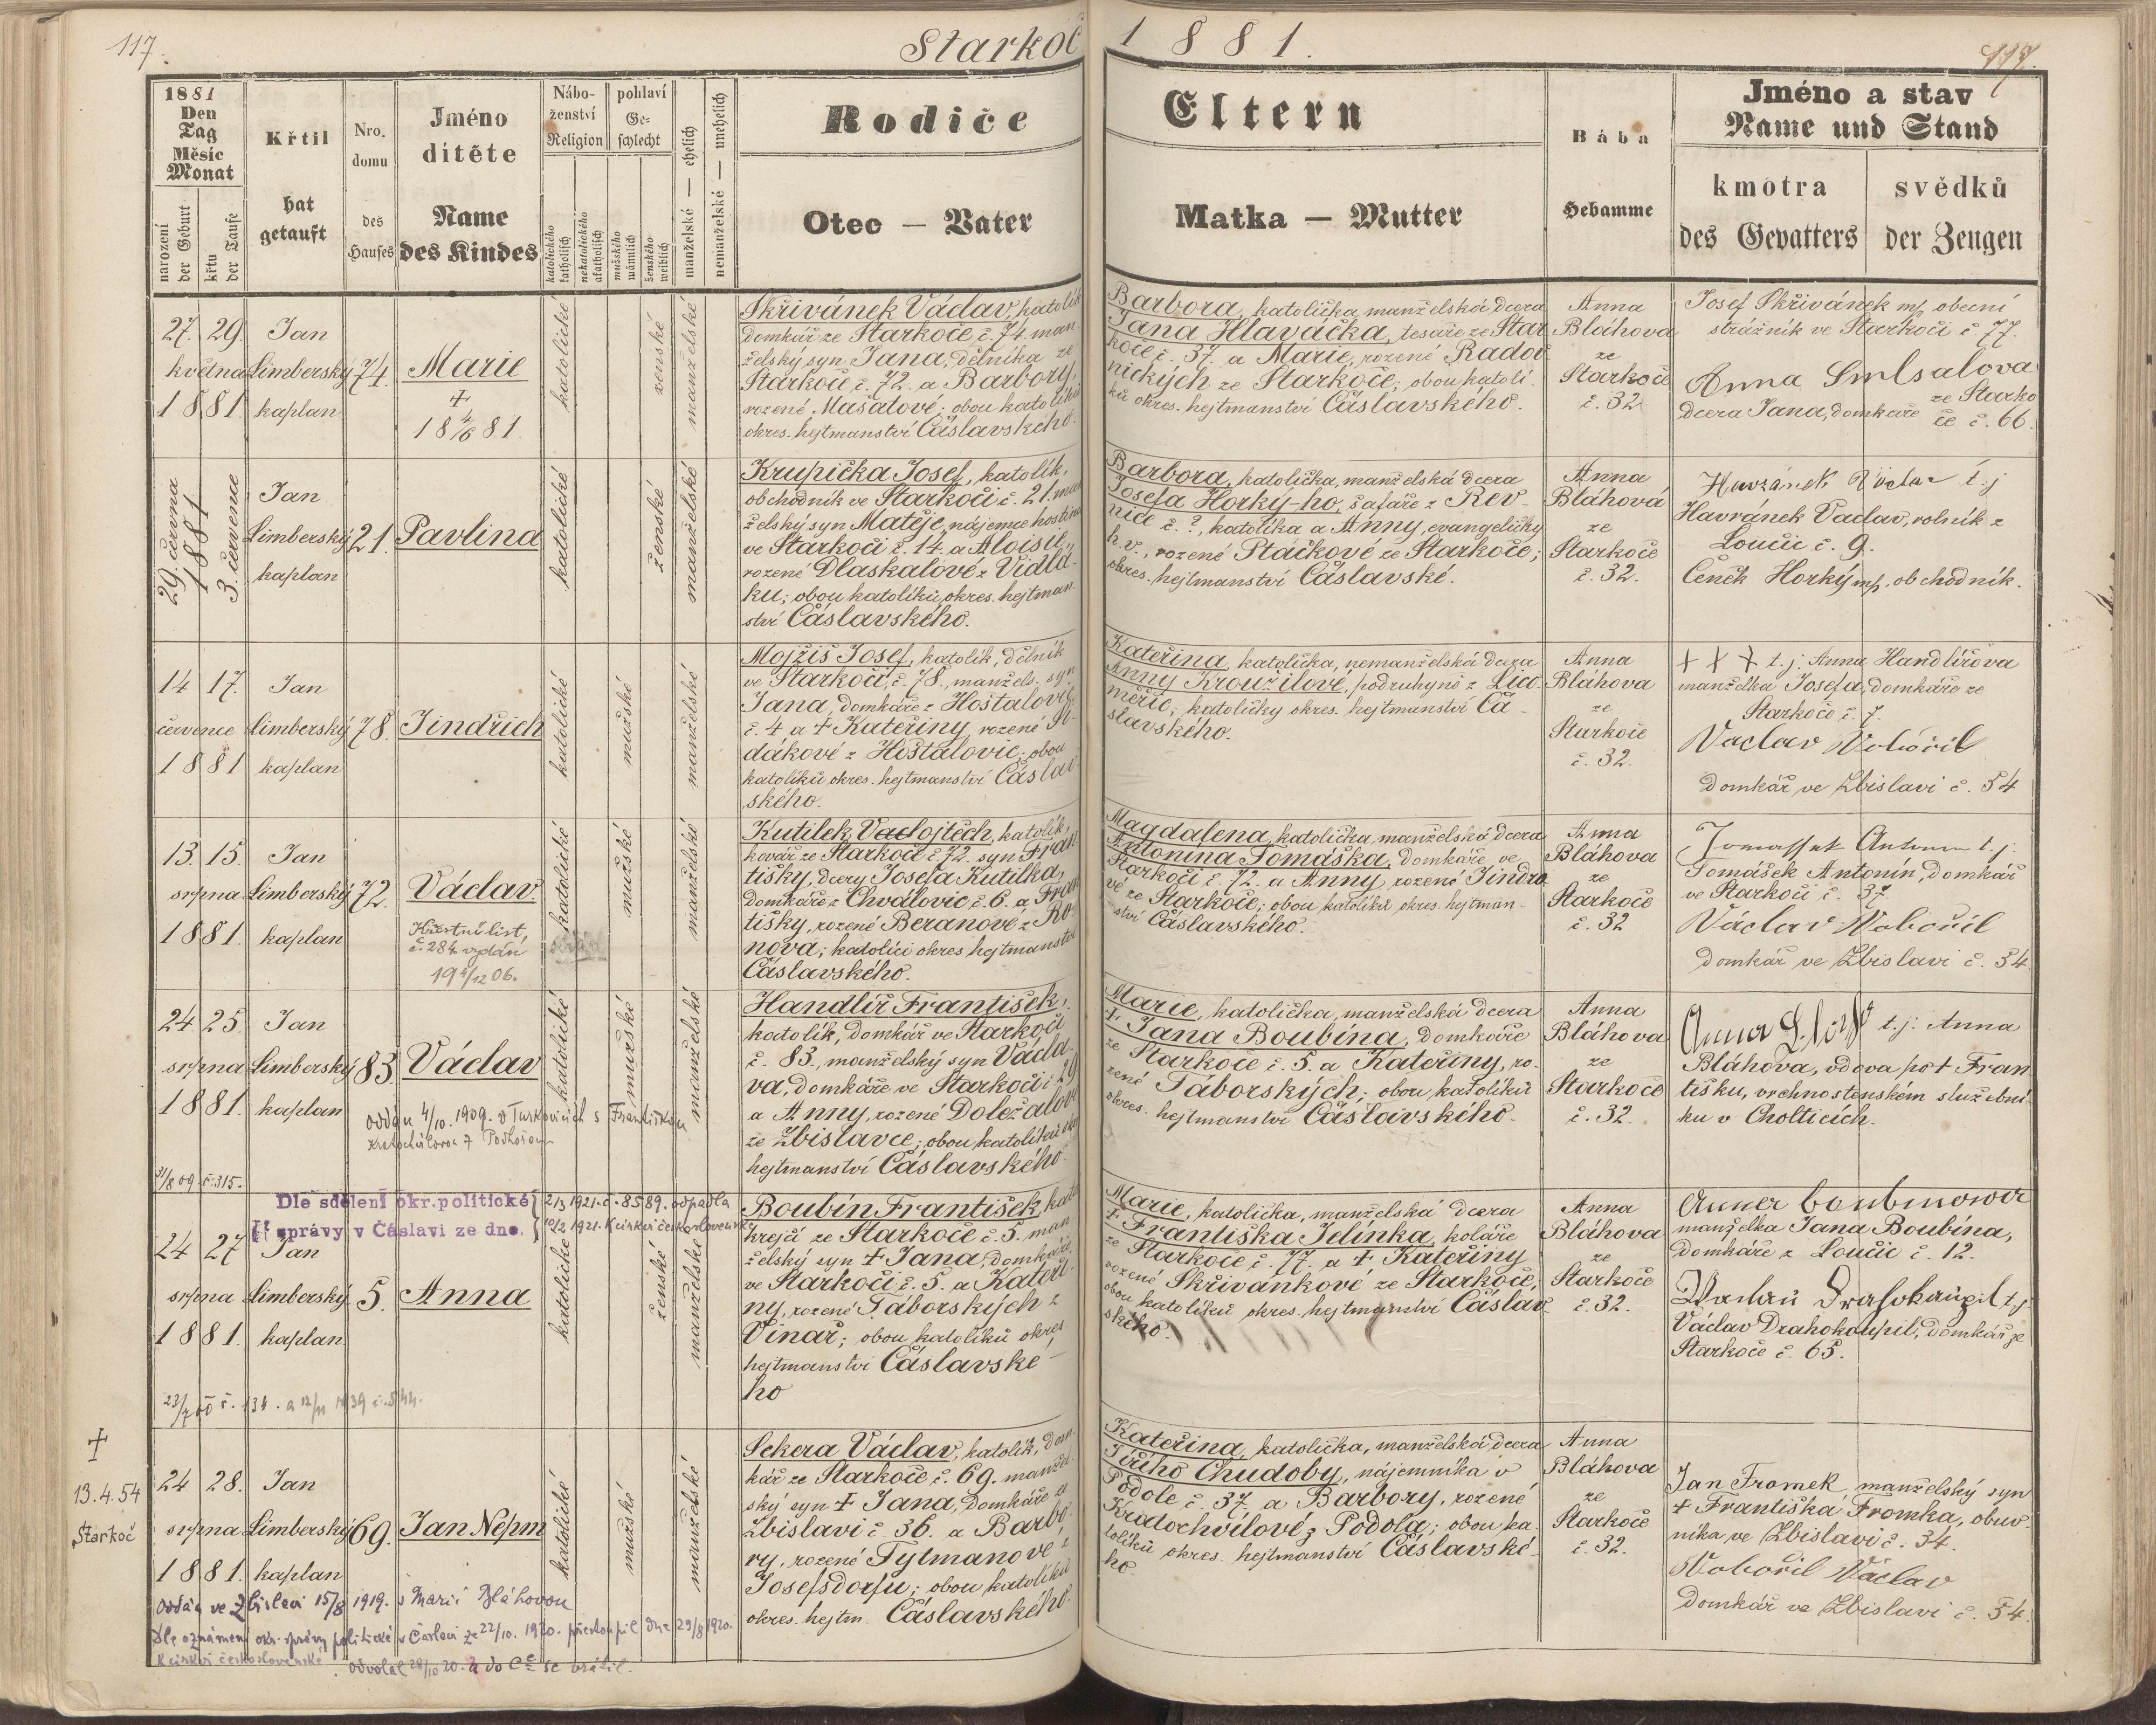 117.
Starkoč
1881.
117.
1881
Den
Tag
Měsíc
Monat
narození
der Geburt
křtu
der Taufe
Křtil
hat
getauft
Nro.
domu
des
Hauses
Jméno
dítěte
Name
des Kindes
Nábo-
ženství
Religion
katolického
katholisch
nekatolického
akatholisch
pohlaví
Ge-
schlecht
mužského
männlich
ženského
weiblich
manželské — ehelich
nemanželské — unehelich
Rodiče
Eltern
Otec — Vater
Matka — Mutter
Bába
Hebamme
Jméno a stav
Name und Stand
kmotra
des Gevatters
svědků
der Zeugen
27. 29.
května
1881.
Jan
Limberský
kaplan
74.
Marie
+
18 4/6 81.
katolické
ženské
manželské
Skřivánek Václav, katolík
domkář ze Starkoče č. 74. man-
želský syn Jana, dělníka ze
Starkoče č. 72. a Barbory,
rozené Mašatové; obou katolíků
okres. hejtmanství Čáslavského.
Barbora, katolička, manželská dcera
Jana Hlaváčka, tesaře ze Star
koče č. 37. a Marie, rozené Rado
nických ze Starkoče; obou katolí-
ků okres. hejtmanství Čáslavského.
Anna
Bláhova
ze
Starkoče
č. 32
Josef Skřivánek mp. obecní
strážník ve Starkoči č 77.
Anna
ze Starko
dcera Jana, domkáře
če č. 66.
29. června
1881
3. července
Jan
Limberský
kaplan
21.
Pavlina
katolické
ženské
manželské
Krupička Josef, katolík,
obchodník ve Starkoči č. 21. man
želský syn Matěje, nájemce hostince
ve Starkoči č. 14. a Aloisie,
rozené Dlaskalové z Vidlá-
ku; obou katolíků, okres. hejtman-
ství Čáslavského.
Barbora, katolička, manželská dcera
Josefa Horký-ho, šafáře z Rev
nice č. ?, katolíka a Anny, evangeličky
h. v., rozené Ptáčkové ze Starkoče;
okres. hejtmanství Čáslavské.
Anna
Bláhová
ze
Starkoče
č. 32.
Havránek Václav t. j
Havránek Vaclav, rolník z
Loučic č. 9.
Čeněk Horký mp. obchodník.
14 17.
července
1881
Jan
Limberský
kaplan
78.
Jindřich
katolické
mužské
manželské
Mojžiš Josef, katolík, dělník
ve Starkoči, č. 78., manžels. syn
Jana, domkáře z Hostalovic
č. 4 a + Kateřiny, rozené
dákové z Hostalovic; obou
katolíků okres. hejtmanství Čáslav-
ského.
Kateřina, katolička, nemanželská dcera
Anny Kroužilové, podruhyně z Lico-
měřic; katoličky okres. hejtmanství Čá-
slavského.
Anna
Bláhova
ze
Starkoče
č. 32.
+ + + t. j. Anna Handlířova
manželka Josefa, domkáře ze
Starkoče č. 7.
Vaclav Nobořil
Domkář ve Zbislavi č. 54
13. 15.
srpna
1881.
Jan
Limberský
kaplan
72.
Václav.
Křestní list,
č. 284 vydán
19 /12 06.
katolické
mužské
manželské
Kutilek Vaclojtěch, katolík,
kovář ze Starkoče č. 72. syn Fran
tišky, dcery Josefa Kutilka,
domkáře z Chválovic č. 6. a Fran
tišky, rozené Beranové z Ro-
nova; katolíci okres hejtmanství
Čáslavského.
Magdalena, katolička, manželská dcera
Antonína Tomáška, domkáře ve
Starkoči č. 72. a Anny, rozené Jindro
vé ze Starkoče; obou katolíků okres. hejtman-
ství Čáslavského.
Anna
Bláhova
ze
Starkoče
č. 32
Antonin t. j.
Tomášek Antonín, domkář
ve Starkoči č. 37.
Václav Nobořil
domkář ve Zbislavi č. 54
24. 25.
srpna
1881
Jan
Limberský
kaplan
83.
Václav
oddán 4/10. 1909. v Turkovicích s Františkou
Kratochvílovou z Podhořan
31/8 09. č. 315.
katolické
mužské
manželské
Handlíř František,
katolík, domkář ve Starkoči
č. 83., manželský syn Václa-
va, domkáře ve Starkoči č 29
a Anny, rozené Doležalové
ze Zbislavce; obou katolíků
hejtmanství Čáslavského.
Marie, katolička, manželská dcera
+ Jana Boubína, domkáře
ze Starkoče č. 5. a Kateřiny, ro-
zené Táborských; obou katolíků
okres. hejtmanství Čáslavského.
Anna
Bláhova
ze
Starkoče
č. 32.
Anna t. j. Anna
Bláhova, vdova po + Fran
tišku, vrchnostenském služební-
ku v Cholticích.
Dle sdělení okr. politické
správy v Čáslavi ze dne.
2/3 1921. č. 8589. odpadla
10/2 1921. k církvi československé
24 27
srpna
1881.
Jan
Limberský
kaplan.
5.
Anna
katolické
ženské
manželské
Boubín František, kato
krejčí ze Starkoče č. 5. man
želský syn + Jana, domkáře
ve Starkoči č. 5. a Kateři-
ny, rozené Táborských z
Vinař; obou katolíků okres
hejtmanství Čáslavské-
ho
Marie, katolička, manželská dcera
+ Františka Jelínka, koláře
ze Starkoče č. 77. a + Kateřiny
rozené Skřivánkové ze Starkoče,
obou katolíků okres. hejtmanství Čáslav-
ského.
Anna
Bláhova
ze
Starkoče
č. 32.
Anna boubinowa
manželka Jana Boubína,
domkáře z Loučic č. 12.
t. j.
Václav Drahokoupil, domkář ze
Starkoče č. 65.
a 12/11 1939 č. 544.
+
13. 4. 54
Starkoč
24 28.
srpna
1881.
Jan
Limberský
kaplan
69.
Jan Nepm
katolické
mužské
manželské
Sekera Václav, katolík, dom-
kář ze Starkoče č. 69. manžel-
ský syn + Jana, domkáře ze
Zbislavi č. 36. a Barbo-
ry, rozené Tytmanové z
Josefsdorfu; obou katolíků
okres. hejtm. Čáslavského.
Kateřina, katolička, manželská dcera
Jiřího Chudoby, nájemníka v
Podole č. 37. a Barbory, rozené
Kratochvílové z Podola; obou ka-
tolíků okres. hejtmanství Čáslavské-
ho
Anna
Bláhova
ze
Starkoče
č. 32.
Jan Fromek, manželský syn
+ Františka Fromka, obuv-
níka ve Zbislavi č. 34.
Nobořil Václav
domkář ve Zbislavi č. 54.
Oddán ve Zbislavi 15/8 1919. s Marií Bláhovou
Dle oznámení okr. správy politické v Čáslavi ze 22/10. 1920. přestoupil dne 29/8 1920.
k církvi československé. odvolal 28/10 20. a do Cce se vrátil.